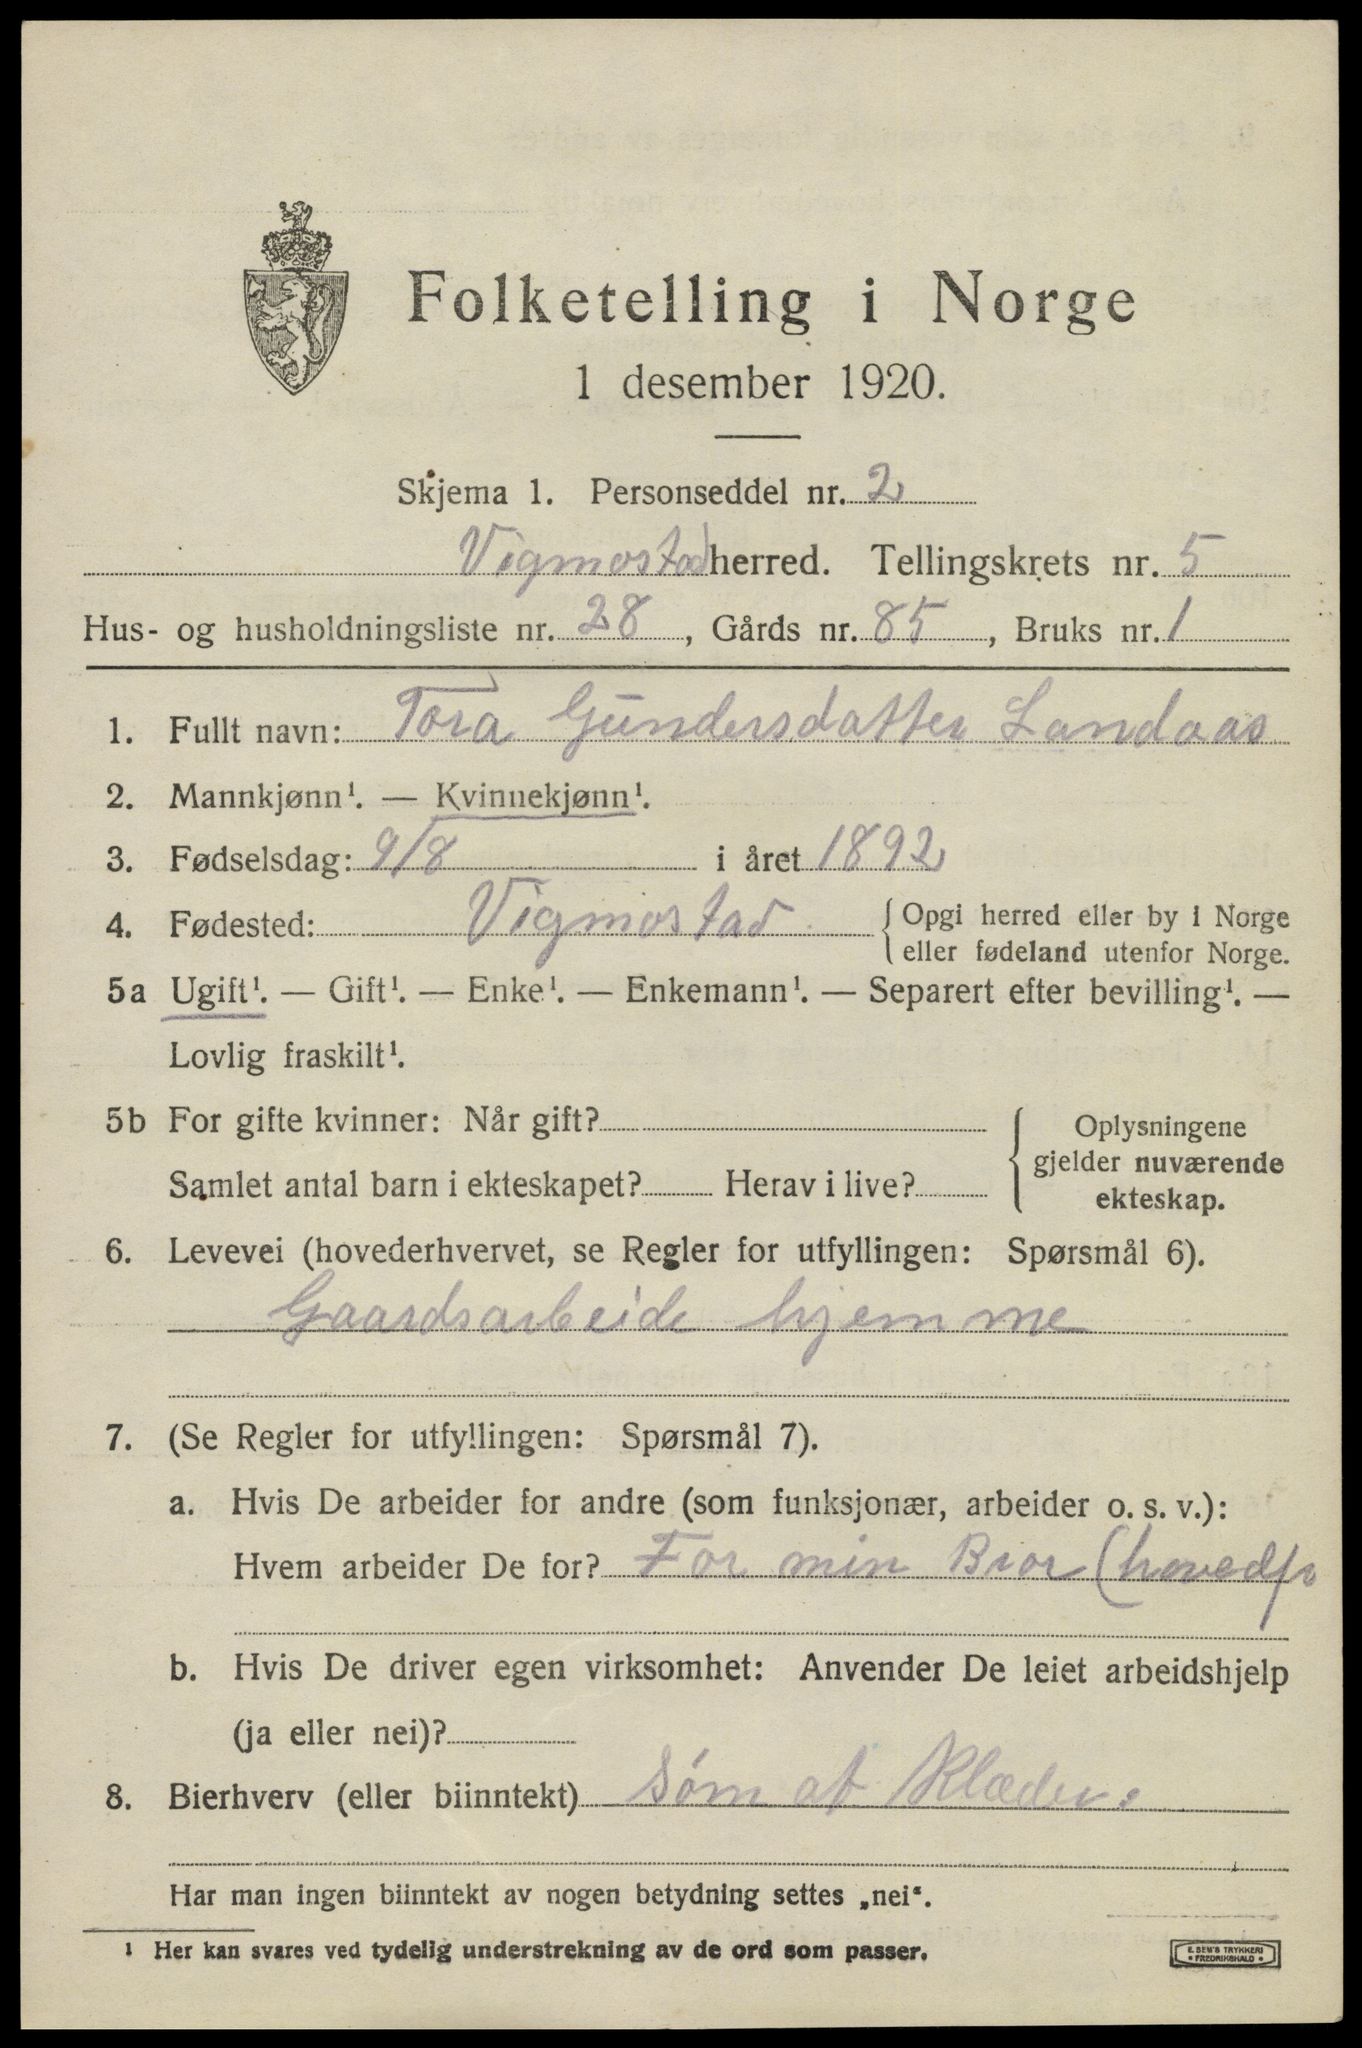 Folketelling i Norge
1 desember 1920.
Skjema 1. Personseddel nr. 2
Vigmostad herred. Tellingskrets nr. 5
Hus- og husholdningsliste nr. 28, Gårds nr. 85, Bruks nr. 1
1. Fullt navn: Tora Gundersdatter Landaas
2. Mannkjønn¹. — Kvinnekjønn¹.
3. Fødselsdag: 9/8 i året 1892
4. Fødested: Vigmostad { Opgi herred eller by i Norge
eller fødeland utenfor Norge.
5a Ugift¹. — Gift¹. — Enke¹. — Enkemann¹. — Separert efter bevilling¹. —
Lovlig fraskilt¹.
5b For gifte kvinner: Når gift?
Samlet antal barn i ekteskapet? Herav i live?
{ Oplysningene
gjelder nuværende
ekteskap.
6. Levevei (hovederhvervet, se Regler for utfyllingen: Spørsmål 6).
Gaardsarbeide hjemme
7. (Se Regler for utfyllingen: Spørsmål 7).
a. Hvis De arbeider for andre (som funksjonær, arbeider o. s. v.):
Hvem arbeider De for? For min Bror (hovedp
b. Hvis De driver egen virksomhet: Anvender De leiet arbeidshjelp
(ja eller nei)?
8. Bierhverv (eller biinntekt) Søm af Klæder.
Har man ingen biinntekt av nogen betydning settes „nei“.
¹ Her kan svares ved tydelig understrekning av de ord som passer.
E. SEM'S TRYKKERI
• FREDRIKSHALD •